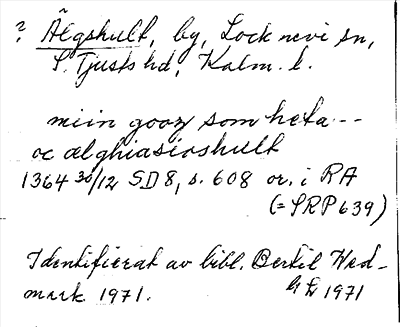 ? Älgshult, by, Locknevi sn,
S. Tjusts hd, Kalm. l.
miin gooz som heta ---
oc ælghiasioshult
1364 30/12 SD 8, s. 608 or. i RA
(= SRP 639)
Identifierat av bibl. Bertil Wed-
mark 1971.
1971